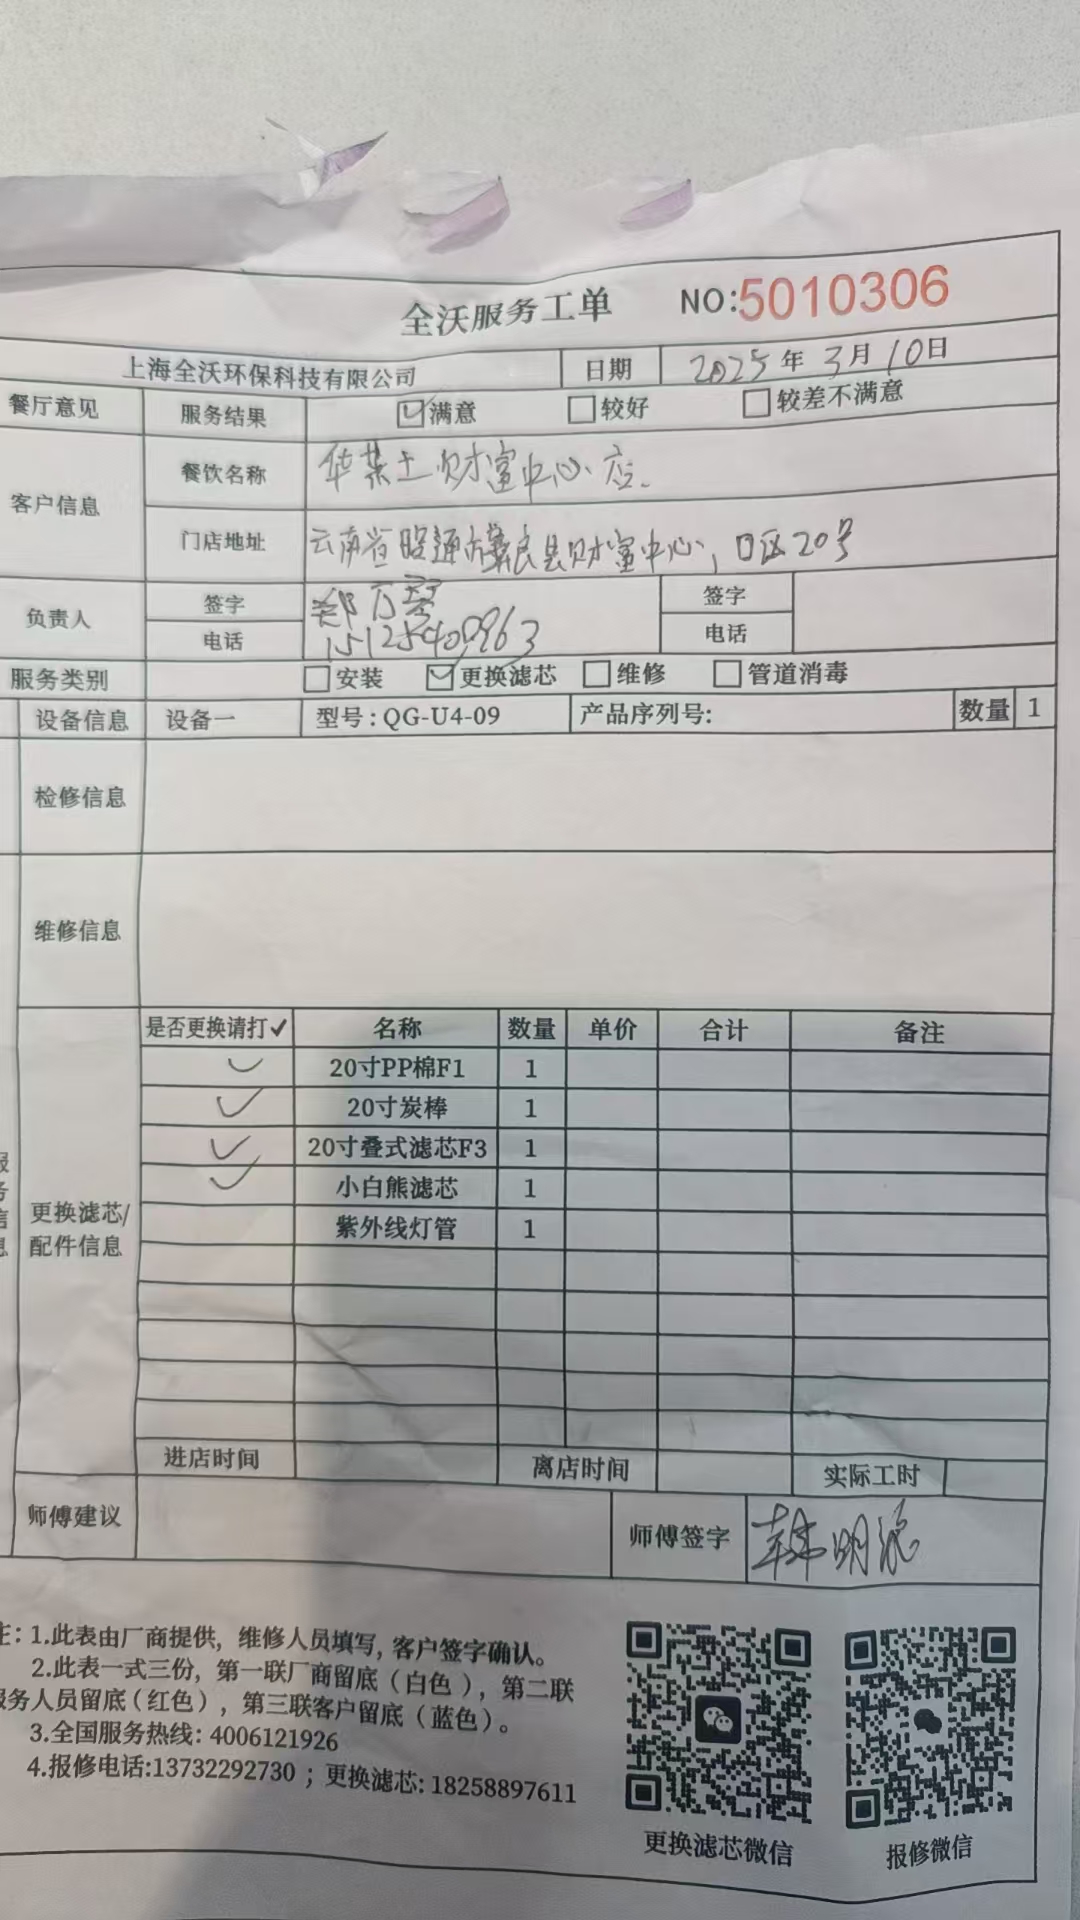 全沃服务工单 NO:5010306
上海全沃环保科技有限公司 日期 2025年3月10日
餐厅意见 服务结果 满意 较好 较差不满意
客户信息 餐饮名称 华莱士财富中心店。
门店地址 云南省昭通市彝良县财富中心,D区20号
负责人 签字 郑万琴 签字
电话 电话
服务类别 安装 更换滤芯 维修 管道消毒
设备信息 设备一 型号:QG-U4-09 产品序列号: 数量 1
检修信息
维修信息
是否更换请打✓ 名称 数量 单价 合计 备注
✓ 20寸PP棉F1 1
✓ 20寸炭棒 1
✓ 20寸叠式滤芯F3 1
✓ 小白熊滤芯 1
紫外线灯管 1
更换滤芯/
配件信息
进店时间 离店时间 实际工时
师傅建议 师傅签字 韩明浪
注:1.此表由厂商提供,维修人员填写,客户签字确认。
2.此表一式三份,第一联厂商留底(白色),第二联
服务人员留底(红色),第三联客户留底(蓝色)。
3.全国服务热线:4006121926
4.报修电话:13732292730;更换滤芯:18258897611
更换滤芯微信 报修微信